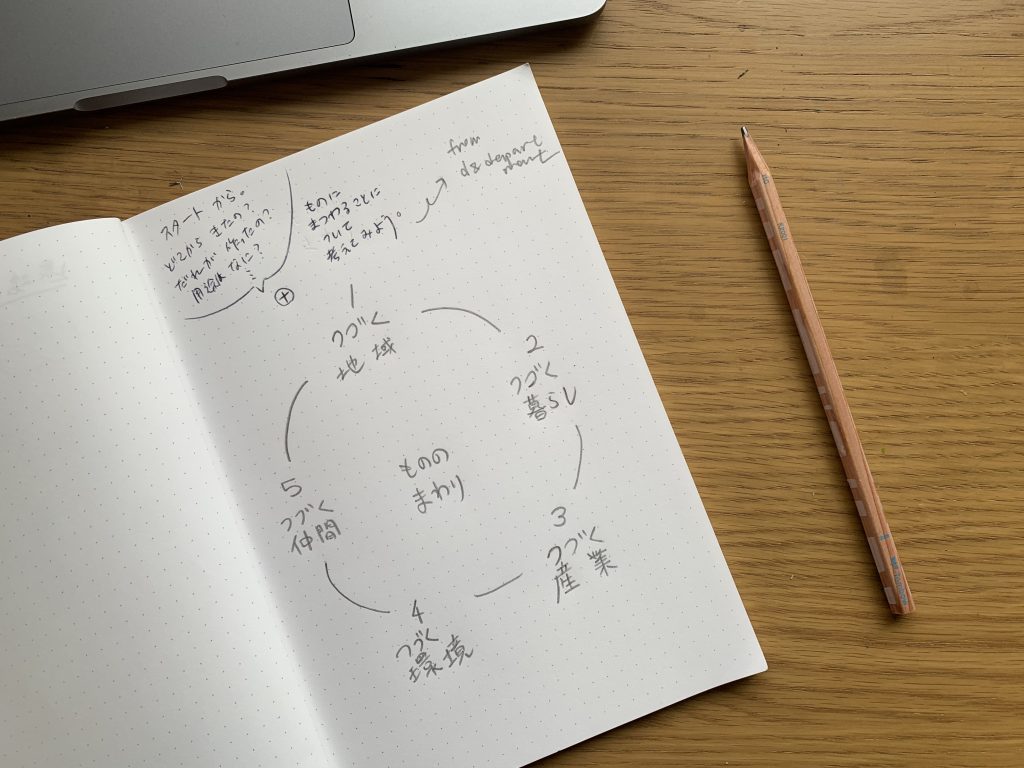 スタートから。
どこからきたの？
だれが作ったの？
用途はなに？
⊕
ものに
まつわることに
ついて
考えてみよう。
from
d&department
1
つづく
地域
2
つづく
暮らし
3
つづく
産業
4
つづく
環境
5
つづく
仲間
ものの
まわり